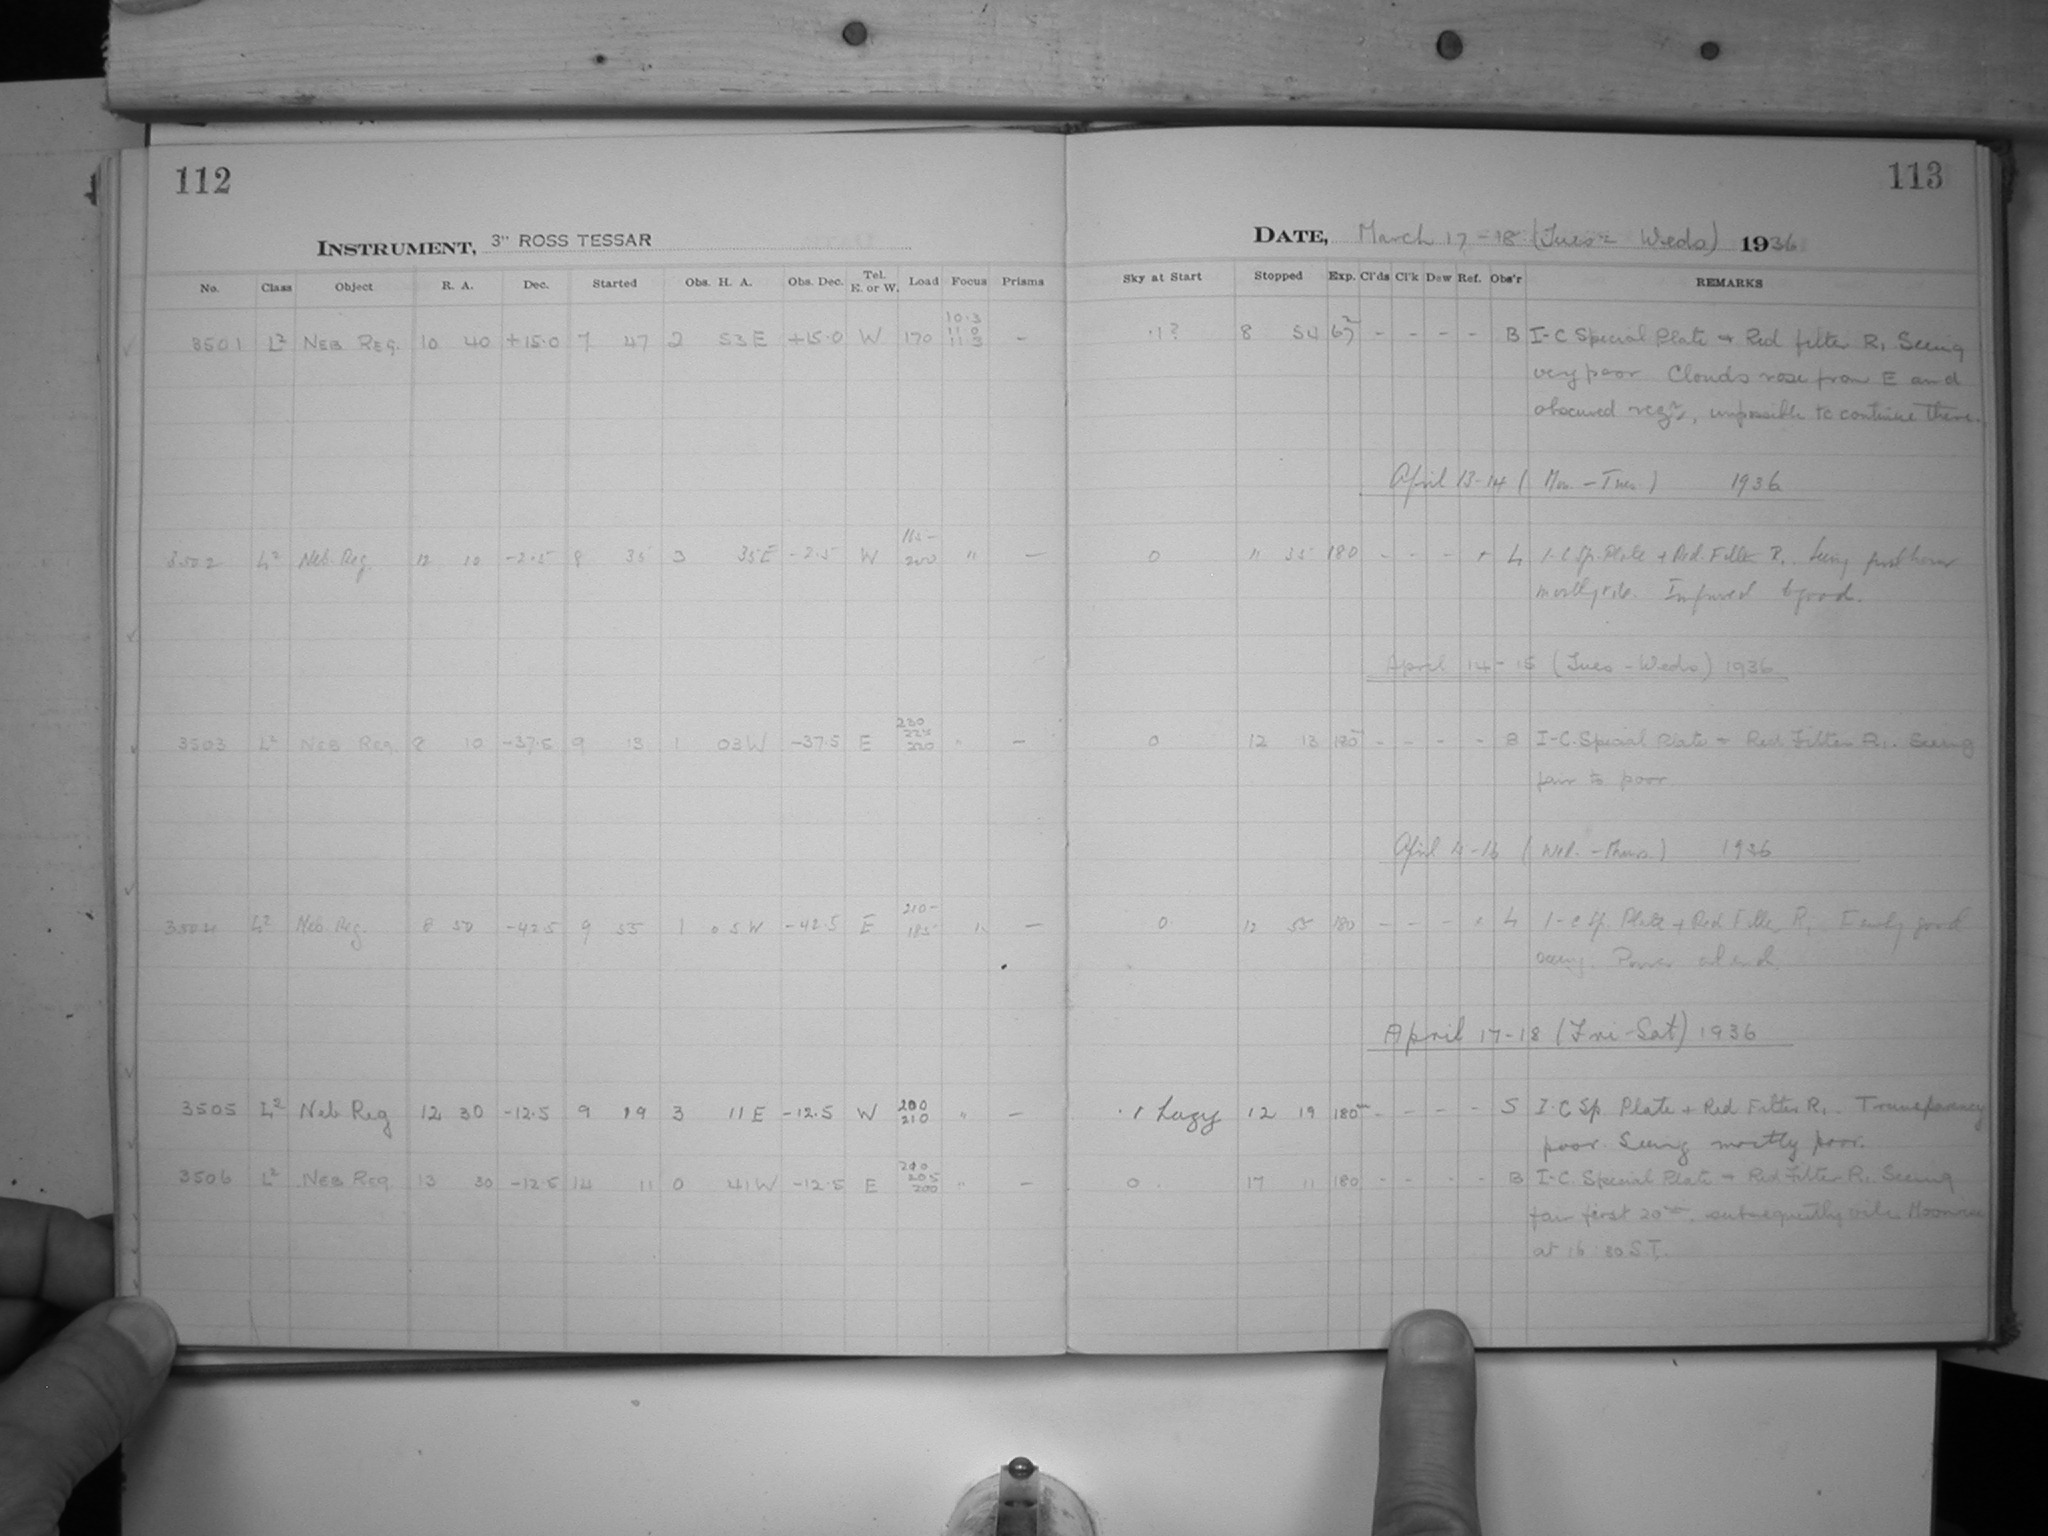 112
113
INSTRUMENT, 3" ROSS TESSAR
DATE, March 17-18 (Tues - Weds) 1936
No. Class Object R. A. Dec. Started Obs. H. A. Obs. Dec. Tel. E. or W. Load Focus Prisms Sky at Start Stopped Exp. Cl'ds Cl'k Dew Ref. Obs'r REMARKS
3501 L² NEB REG. 10 40 +15.0 7 47 2 53 E +15.0 W 170 10.3 11.0 11.3 - .1? 8 54 67 - - - - B I-C Special Plate + Red filter R₁ Seeing
very poor Clouds rose from E and
obscured regn, impossible to continue there.
April 13-14 (Mon. - Tues.) 1936
3502 L² Neb. Reg. 12 10 -2.5 8 35 3 35 E -2.5 W 200 " - 0 11 35 180 - - - L I-C Sp. Plate + Red. Filter R₁. Seeing first hour
mostly vile. Improved to good.
April 14-15 (Tues - Weds) 1936
3503 L² NEB REG. 8 10 -37.5 9 13 1 03 W -37.5 E 230 225 220 " - 0 12 13 180 - - - - B I-C. Special Plate + Red Filter R₁. Seeing
fair to poor
April (Wed. - Thurs.) 1936
3504 L² Neb. Reg. 8 50 -42.5 9 55 1 05 W -42.5 E 210- 185 " - 0 12 55 180 - - - L I-C Sp. Plate + Red Filter R₁. Fairly good
seeing. Poorer at end.
April 17-18 (Fri-Sat) 1936
3505 L² Neb Reg 12 30 -12.5 9 19 3 11 E -12.5 W 200 210 " - .1 Hazy 12 19 180 - - - - S I-C Sp. Plate + Red Filter R₁. Transparency
poor. Seeing mostly poor.
3506 L² NEB REG. 13 30 -12.5 14 11 0 41 W -12.5 E 210 205 200 " - 0 17 11 180 - - - - B I-C. Special Plate + Red Filter R₁. Seeing
fair first 20m, subsequently vile. Moonrise
at 16 30 S.T.